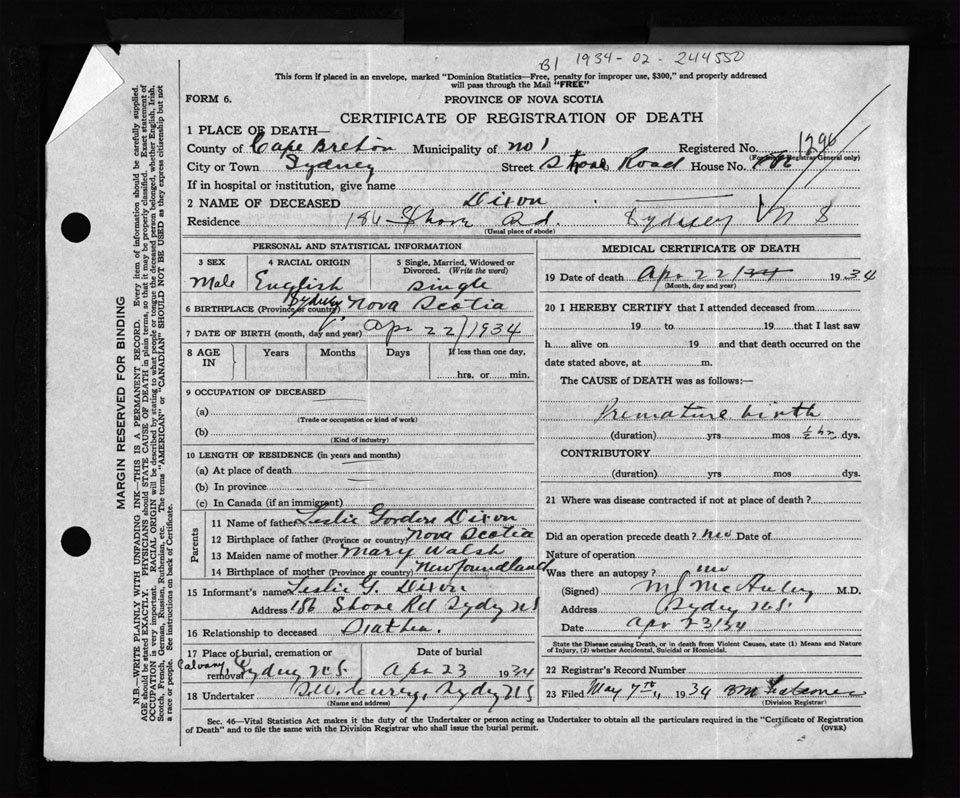 B1 1934-02-244550
This form if placed in an envelope, marked "Dominion Statistics—Free, penalty for improper use, $300," and properly addressed
will pass through the Mail "FREE"
FORM 6.
PROVINCE OF NOVA SCOTIA
CERTIFICATE OF REGISTRATION OF DEATH
1 PLACE OF DEATH—
County of Cape Breton Municipality of No 1 Registered No. 1296
(For use of Registrar General only)
City or Town Sydney Street Shore Road House No.
If in hospital or institution, give name
2 NAME OF DECEASED Dixon
Residence 186 Shore Rd. Sydney N S
(Usual place of abode)
PERSONAL AND STATISTICAL INFORMATION
3 SEX
Male
4 RACIAL ORIGIN
English
5 Single, Married, Widowed or
Divorced. (Write the word)
Single
6 BIRTHPLACE (Province or country) Sydney Nova Scotia
7 DATE OF BIRTH (month, day and year) Apr 22/1934
8 AGE
IN
Years Months Days If less than one day,
hrs. or min.
9 OCCUPATION OF DECEASED
(a)
(Trade or occupation or kind of work)
(b)
(Kind of industry)
10 LENGTH OF RESIDENCE (in years and months)
(a) At place of death
(b) In province
(c) In Canada (if an immigrant)
Parents
11 Name of father Leslie Gordon Dixon
12 Birthplace of father (Province or country) Nova Scotia
13 Maiden name of mother Mary Walsh
14 Birthplace of mother (Province or country) Newfoundland
15 Informant's name Leslie G. Dixon
Address 186 Shore Rd Sydney NS
16 Relationship to deceased
17 Place of burial, cremation or
removal Calvary Sydney N.S.
Date of burial
Apr 23 1934
18 Undertaker Sydney NS
(Name and address)
MEDICAL CERTIFICATE OF DEATH
19 Date of death Apr 22/34 1934
(Month, day and year)
20 I HEREBY CERTIFY that I attended deceased from
19 to 19 that I last saw
h alive on 19 and that death occurred on the
date stated above, at m.
The CAUSE of DEATH was as follows:—
Premature birth
(duration) yrs mos ½ hr dys.
CONTRIBUTORY
(duration) yrs mos dys.
21 Where was disease contracted if not at place of death?
Did an operation precede death? No Date of
Nature of operation
Was there an autopsy? no
(Signed) M.D.
Address Sydney N.S.
Date Apr 23/34
State the Disease Causing Death, or in death from Violent Causes, state (1) Means and Nature
of Injury, (2) whether Accidental, Suicidal or Homicidal.
22 Registrar's Record Number
23 Filed May 7th, 1934
(Division Registrar)
Sec. 46—Vital Statistics Act makes it the duty of the Undertaker or person acting as Undertaker to obtain all the particulars required in the "Certificate of Registration
of Death" and to file the same with the Division Registrar who shall issue the burial permit.
(OVER)
MARGIN RESERVED FOR BINDING
N.B.—WRITE PLAINLY WITH UNFADING INK—THIS IS A PERMANENT RECORD. Every item of information should be carefully supplied.
AGE should be stated EXACTLY. PHYSICIANS should STATE CAUSE OF DEATH in plain terms, so that it may be properly classified. Exact statement of
OCCUPATION is very important. RACIAL ORIGIN will be described by stating to what people or tongue the deceased person belonged, whether English, Irish,
Scotch, French, German, Russian, Ruthenian, etc. The terms "AMERICAN" or "CANADIAN" SHOULD NOT BE USED as they express citizenship but not
a race or people. See instructions on back of Certificate.